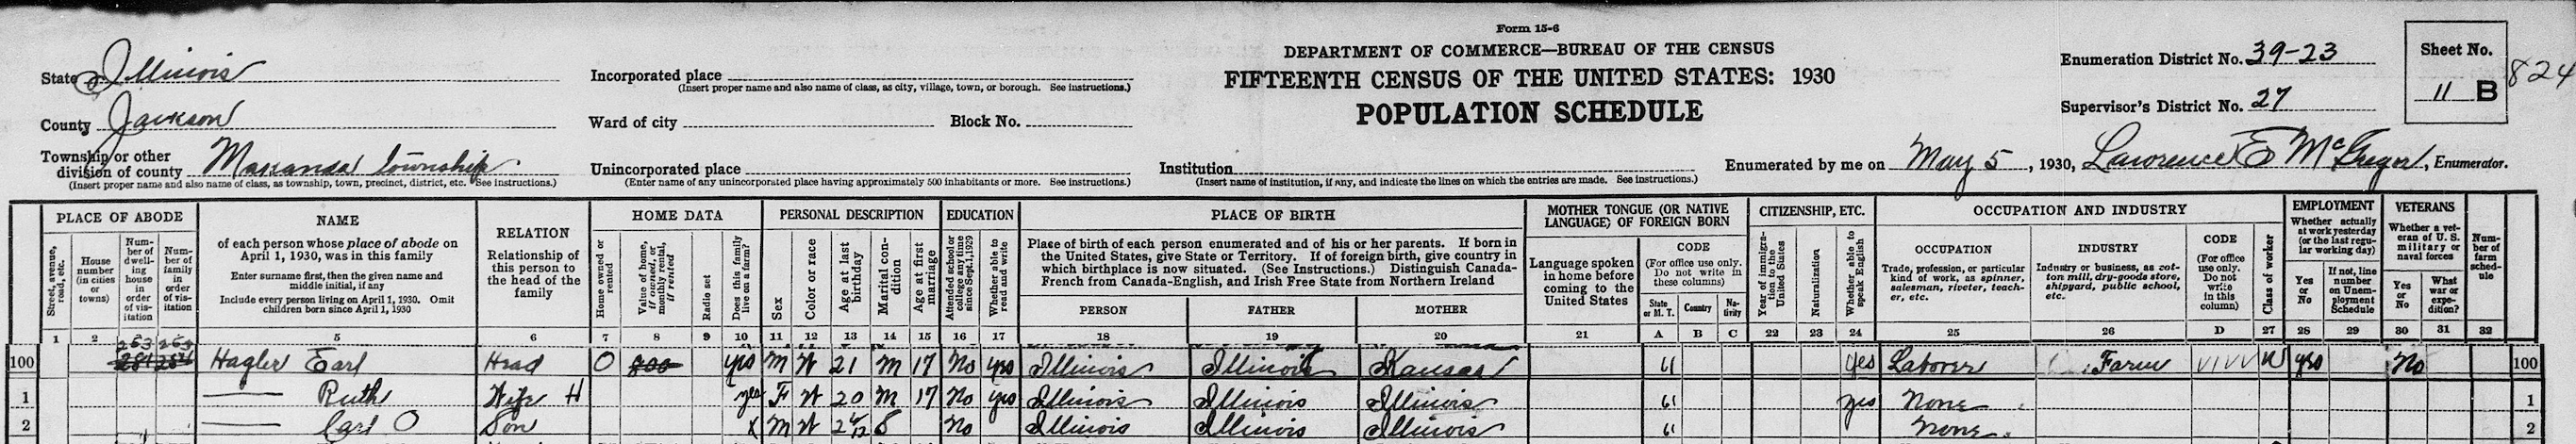 Form 15-6
DEPARTMENT OF COMMERCE—BUREAU OF THE CENSUS
FIFTEENTH CENSUS OF THE UNITED STATES: 1930
POPULATION SCHEDULE
State Illinois
County Jackson
Township or other division of county Makanda township
(Insert proper name and also name of class, as township, town, precinct, district, etc. See instructions.)
Incorporated place
(Insert proper name and also name of class, as city, village, town, or borough. See instructions.)
Ward of city Block No.
Unincorporated place
(Enter name of any unincorporated place having approximately 500 inhabitants or more. See instructions.)
Institution
(Insert name of institution, if any, and indicate the lines on which the entries are made. See instructions.)
Enumeration District No. 39-23
Supervisor's District No. 27
Sheet No.
11 B
824
Enumerated by me on May 5, 1930, Lawrence E McGregor, Enumerator.
PLACE OF ABODE
Street, avenue, road, etc.
House number (in cities or towns)
Number of dwelling house in order of visitation
Number of family in order of visitation
NAME
of each person whose place of abode on April 1, 1930, was in this family
Enter surname first, then the given name and middle initial, if any
Include every person living on April 1, 1930. Omit children born since April 1, 1930
RELATION
Relationship of this person to the head of the family
HOME DATA
Home owned or rented
Value of home, if owned, or monthly rental, if rented
Radio set
Does this family live on a farm?
PERSONAL DESCRIPTION
Sex
Color or race
Age at last birthday
Marital condition
Age at first marriage
EDUCATION
Attended school or college any time since Sept. 1, 1929
Whether able to read and write
PLACE OF BIRTH
Place of birth of each person enumerated and of his or her parents. If born in the United States, give State or Territory. If of foreign birth, give country in which birthplace is now situated. (See Instructions.) Distinguish Canada-French from Canada-English, and Irish Free State from Northern Ireland
PERSON FATHER MOTHER
MOTHER TONGUE (OR NATIVE LANGUAGE) OF FOREIGN BORN
Language spoken in home before coming to the United States
CODE
(For office use only. Do not write in these columns)
State or M. T. Country Nativity
CITIZENSHIP, ETC.
Year of immigration to the United States
Naturalization
Whether able to speak English
OCCUPATION AND INDUSTRY
OCCUPATION
Trade, profession, or particular kind of work, as spinner, salesman, riveter, teacher, etc.
INDUSTRY
Industry or business, as cotton mill, dry-goods store, shipyard, public school, etc.
CODE
(For office use only. Do not write in this column)
Class of worker
EMPLOYMENT
Whether actually at work yesterday (or the last regular working day)
Yes or No
If not, line number on Unemployment Schedule
VETERANS
Whether a veteran of U. S. military or naval forces
Yes or No
What war or expedition?
Number of farm schedule
1 2 3 4 5 6 7 8 9 10 11 12 13 14 15 16 17 18 19 20 21 A B C 22 23 24 25 26 D 27 28 29 30 31 32
253 253
100 Hagler Earl Head O 800 yes M W 21 M 17 No yes Illinois Illinois Kansas 61 yes Laborer Farm VIVV W yes No 100
1 Ruth Wife H yes F W 20 M 17 No yes Illinois Illinois Illinois 61 yes None 1
2 Carl O Son X M W S No Illinois Illinois Illinois 61 None 2